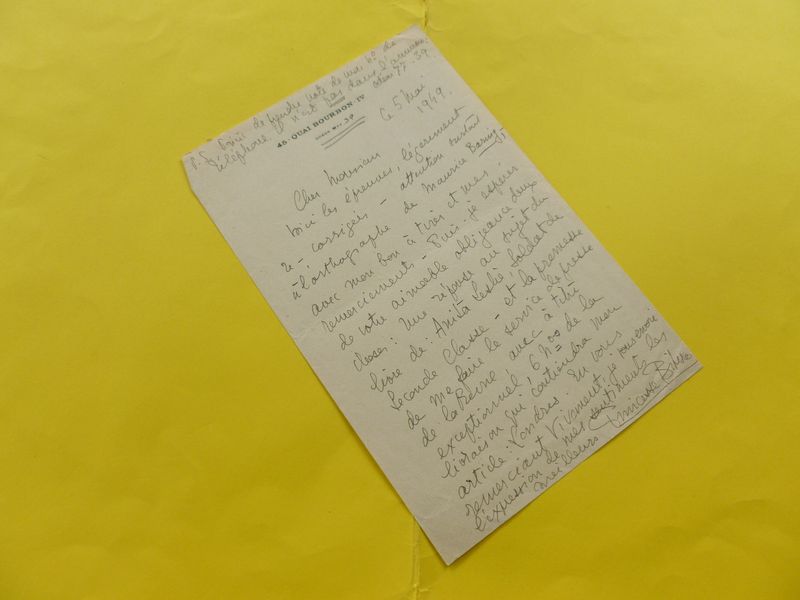 P.S. Prière de prendre note de mon no de
téléphone. Il n'est pas dans l'annuaire.
Odéon 77-39.
45, QUAI BOURBON. IVe
Le 5 Mai
1949.
Cher Monsieur
Voici les épreuves, légèrement
re-corrigées - attention surtout
à l'orthographe de Maurice Baring
avec mon bon à tirer et mes
remerciements - Puis-je espérer
de votre aimable obligeance deux
choses: Une réponse au sujet du
livre de: Anita Leslie, Soldat de
Seconde Classe - et la promesse
de me faire le service de presse
de la Reine avec à titre
exceptionnel, 6 nos de la
livraison qui contiendra mon
article: Londres. En vous
remerciant vivement, je vous envoie
l'expression de mes sentiments les
meilleurs Princesse Bibesco